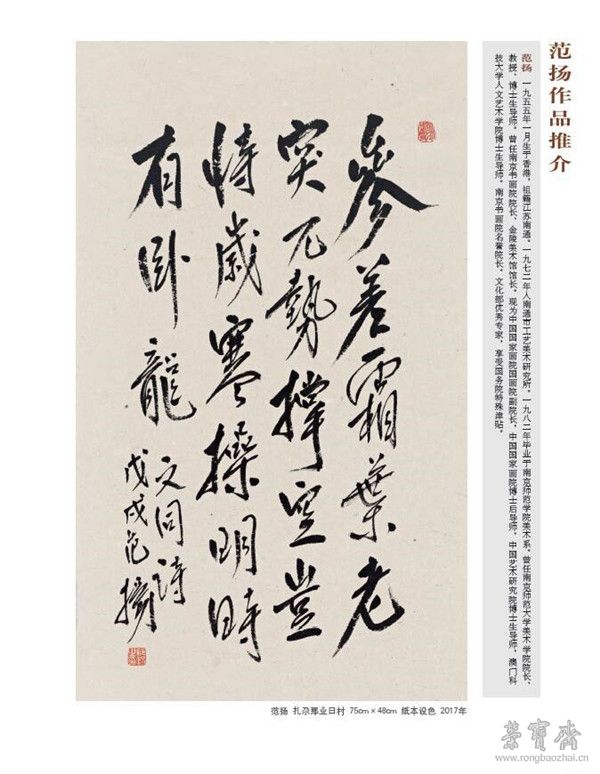 范扬作品推介
范扬 一九五五年一月生于香港，祖籍江苏南通。一九七二年入南通市工艺美术研究所。一九八二年毕业于南京师范学院美术系。曾任南京师范大学美术学院院长、
教授、博士生导师，曾任南京书画院院长、金陵美术馆馆长。现为中国国家画院国画院副院长，中国国家画院博士后导师，中国艺术研究院博士生导师，澳门科
技大学人文艺术学院博士生导师，南京书画院名誉院长，文化部优秀专家，享受国务院特殊津贴。
參差霜葉老
突兀勢撑空豈
恃歲寒操明時
有卧龍
文同诗
戊戌范揚
范扬 扎尕那业日村 75cm×48cm 纸本设色 2017年
荣宝斋
www.rongbaozhai.cn